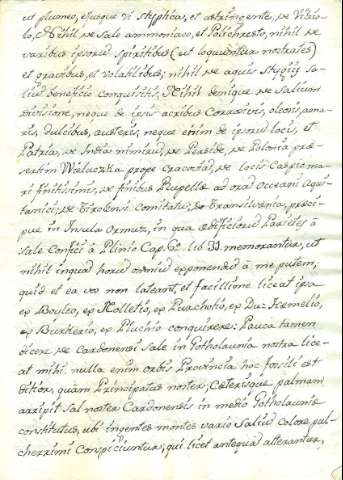 ut plumeo, ejusque vi styptica, et astringente, de Vitrio-
lo, Nihil de Sale ammoniaco, et Polichresto, nihil de
varibus ipsorum Spiritibus (ut loquuntur nostrates)
et gravibus, et volatilibus; nihil de aquis Stygiis Sa-
lium beneficio conquisitis; Nihil denique de Salium
divisione, neque de ipsis acribus Corrosivis, oleosis, ama-
ris, dulcibus, austeris; neque enim de ipsorum locis, et
Patria, de Indiis nimirum, de Perside, de Polonia præ-
sertim Wieluozka prope Cracoviam, de locis Caspio ma-
ri finitissimis, de finibus Rupellæ ad oram Oceani Aqui-
tanici; de Tirolensi Comitatu; de Transilvania, præci-
pue in Insula Ormuz, in qua ædificiorum Parietes à
sale confici à Plinio Cap. lib 33. memorantur, ut
nihil inquam horum omnium exponendum à me putem;
quid et ea vos non lateant, et facillime liceat ipsa
ex Bouleo, ex Nolletio, ex Pluschotio, ex Du-Hamelio,
ex Burherio, ex Pluchio conquirere: Pauca tamen
dicere de Cardonensi Sale in Gotholaunia nostra lice-
at mihi. nulla enim orbis Provincia hoc fossili est
ditior, quam Principatus noster; Cæterisque palmam
arripit Sal noster Cardonensis in medio Gotholauniæ
constitutus, ubi ingentes montes vario Salium colore pul-
cherrimi conspiciuntur; qui licet antequam alterantur,